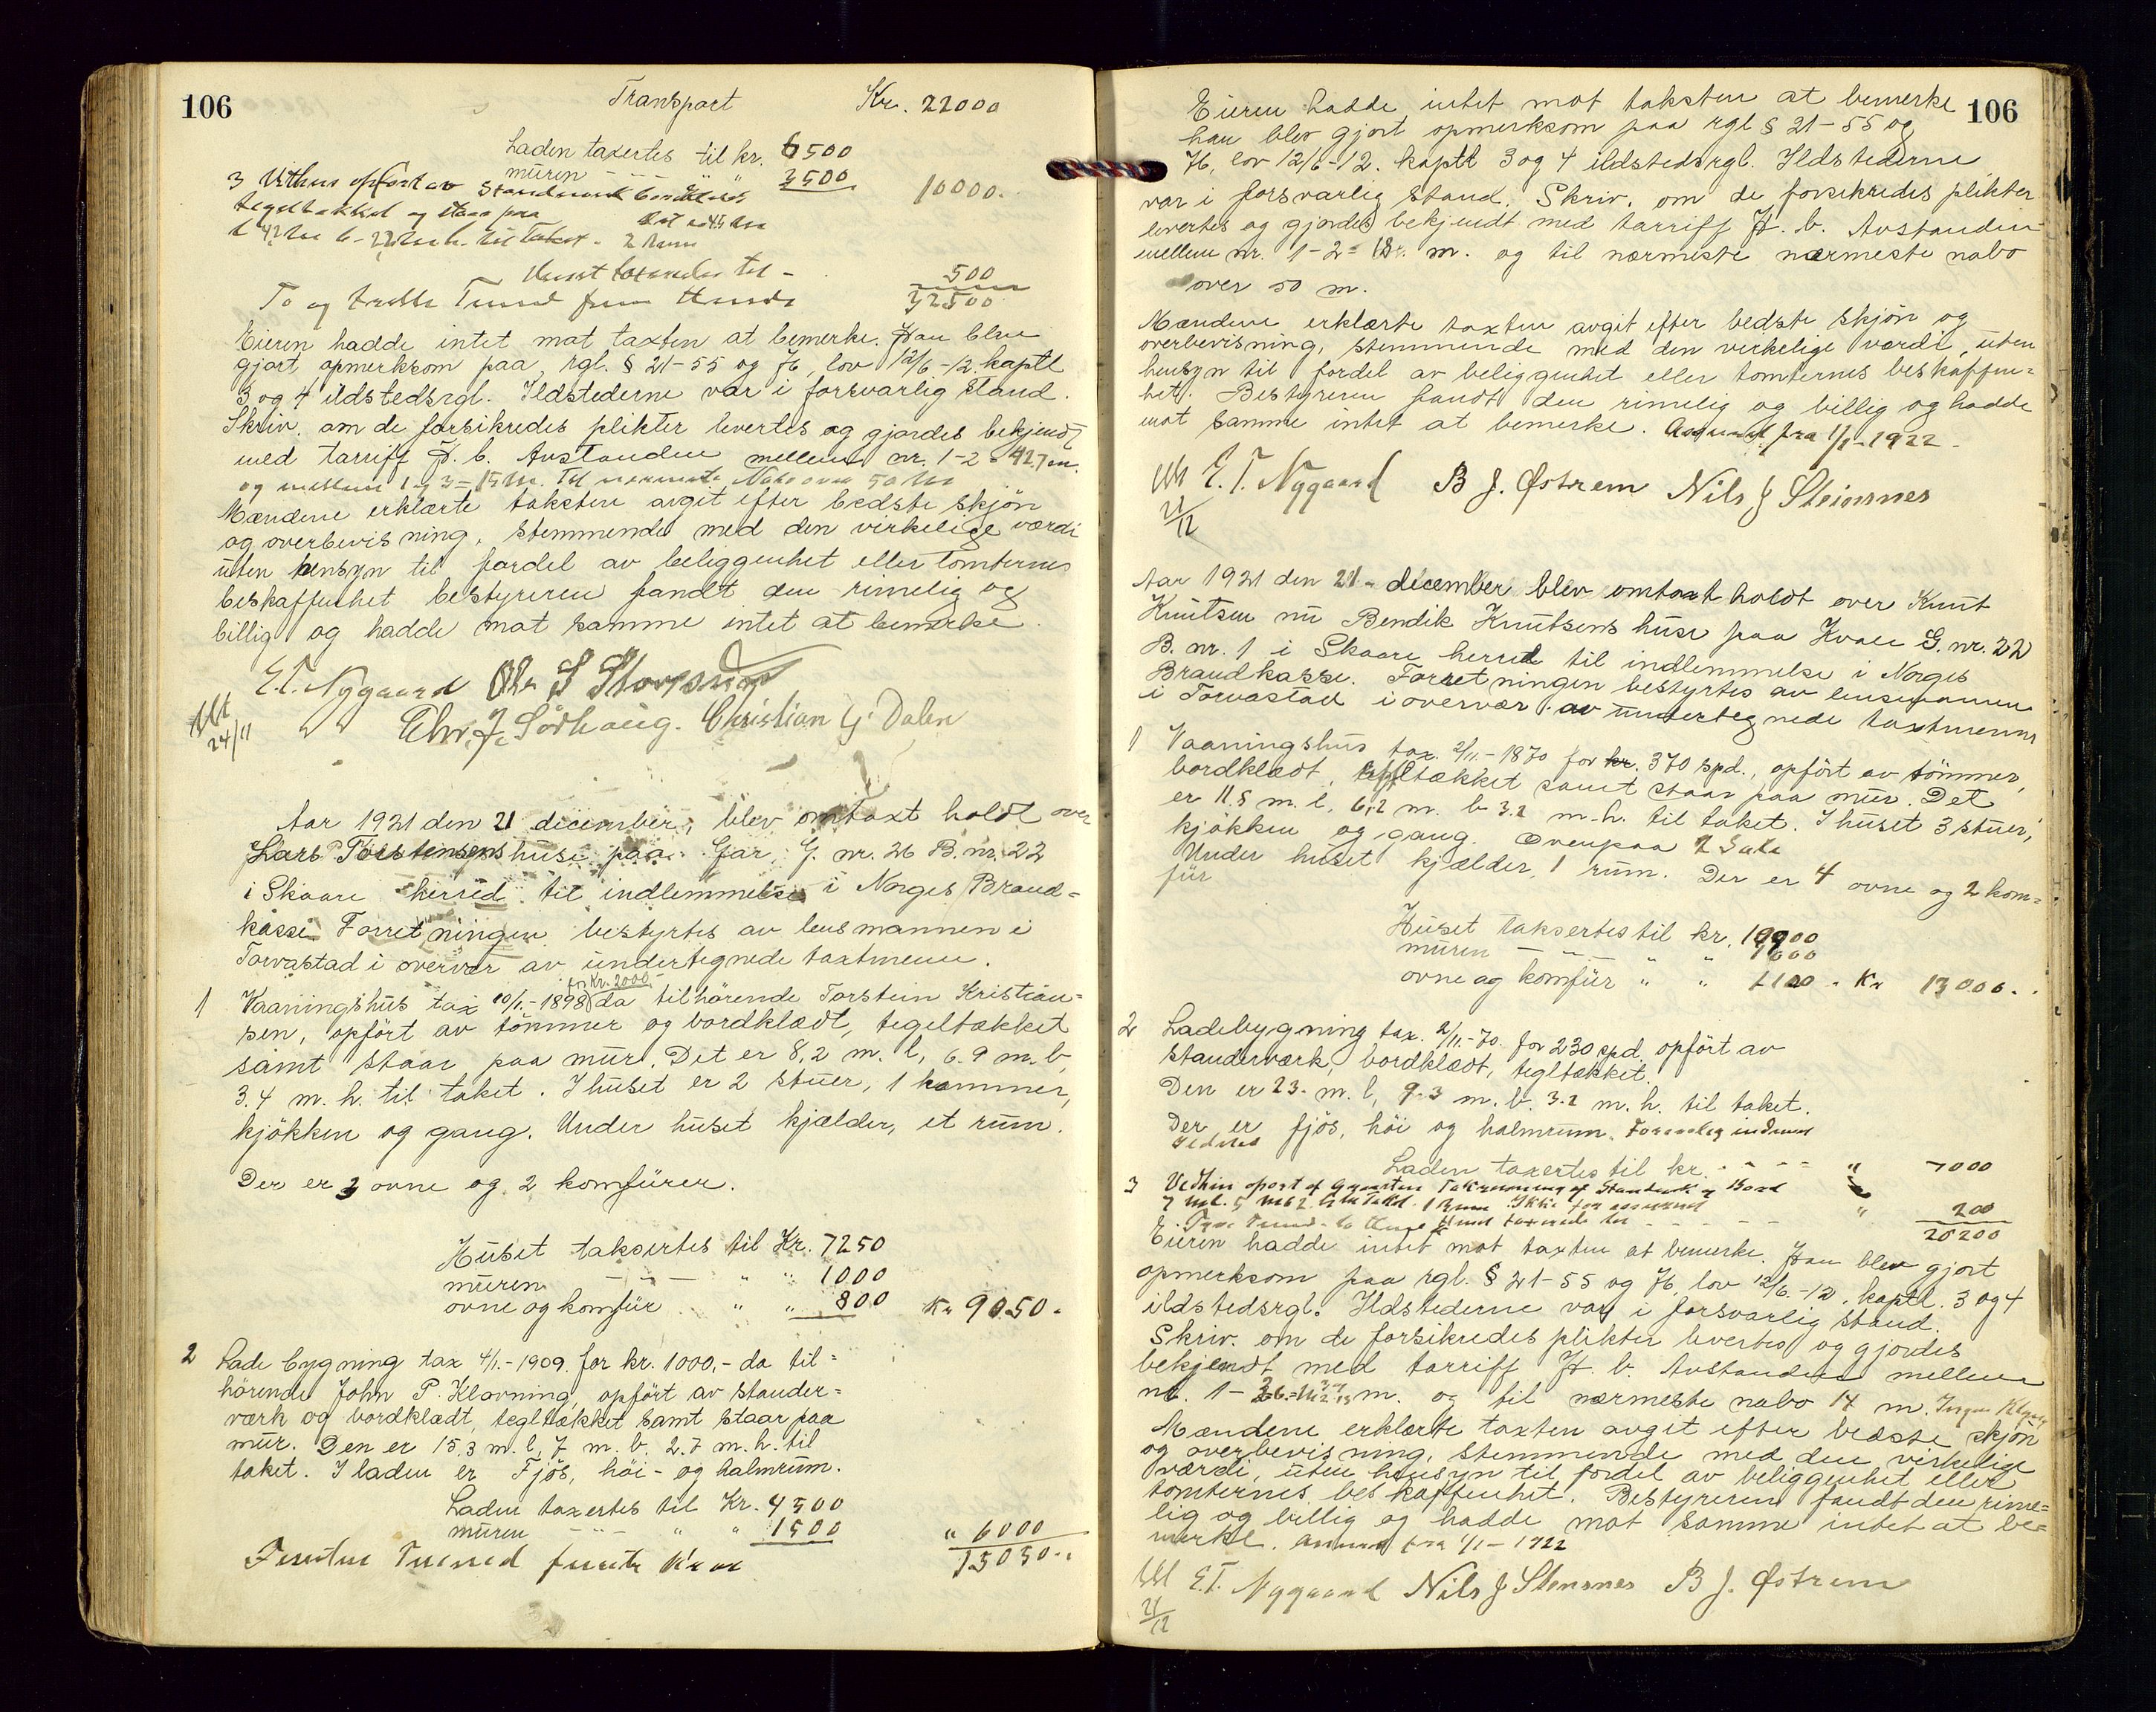 106
Transport Kr. 22000
Laden taxertes til kr. 6500
muren - - - " " 3500 10000.
3 Uthus opført av Standverk bordklædt
tegeltækket og staar paa
Huset taxertes til - 500
To og tredve Tusind fem Hundr 32500
Eieren hadde intet mot taxten at bemerke. Han blev
gjort opmerksom paa rgl. § 21-55 og 76, lov 12/6-12. kaptl
3 og 4 ildstedsrgl. Ildstederne var i forsvarlig stand.
Skriv. om de forsikredes plikter levertes og gjordes bekjendt
med tarriff H. b. Avstanden mellem nr. 1-2 = 42,7 m.
og mellem 1 og 3 = 15 m. Til nærmeste Nabo over 50 m
Mændene erklærte taksten avgit efter bedste skjön
og overbevisning, stemmende med den virkelige værdi
uten hensyn til fordel av beliggenhet eller tomternes
beskaffenhet bestyreren fandt den rimelig og
billig og hadde mot samme intet at bemerke.
E. T. Nygaard Ole S Storesund
24/11 Chr. J. Sörhaug. Christian G. Dalen
Aar 1921 den 21 december, blev omtaxt holdt over
Lars Torstensens huse paa Gar G. nr. 26 B. nr. 22
i Skaare herred til indlemmelse i Norges Brand=
kasse. Forretningen bestyrtes av lensmannen i
Torvastad i overvær av undertegnede taxtmenn.
for Kr. 2000.
1 Vaaningshus tax 10/1.-1898 da tilhörende Torstein Kristian=
sen, opfört av tömmer og bordklædt, tegeltækket
samt staar paa mur. Det er 8,2 m. l, 6.9 m. b,
3.4 m. h. til taket. I huset er 2 stuer, 1 kammer,
kjökken og gang. Under huset kjælder, et rum.
Der er 3 ovne og 2 komfürer.
Huset taksertes til Kr. 7250
muren - - - " " 1000
ovne og komfür " " 800 Kr 9050.
2 Lade bygning tax 4/1.-1909. for kr. 1000,- da til=
hörende John P. Klovning, opfört av stander=
værk og bordklædt, tegltækket samt staar paa
mur. Den er 15,3 m. l, 7 m. b. 2.7 m. h. til
taket. I laden er Fjös, höi- og halmrum.
Laden taxertes til Kr. 4500
muren - - - " " 1500 " 6000
Femten Tusend femti Kron 15050..
106
Eieren hadde intet mot taksten at bemerke
han blev gjort opmerksom paa rgl § 21-55 og
76, lov 12/6-12. kaptl 3 og 4 ildstedsrgl. Ildstederne
var i forsvarlig stand. Skriv. om de forsikredes plikter
levertes og gjordes bekjendt med tarriff H. b. Avstanden
mellem nr. 1-2 = 18 m. og til nærmeste nærmeste nabo
over 50 m.
Mændene erklærte taxten avgit efter bedste skjön og
overbevisning, stemmende med den virkelige værdi, uten
hensyn til fordel av beliggenhet eller tomternes beskaffen=
het. Bestyreren fandt den rimelig og billig og hadde
mot samme intet at bemerke. Assurert fra 1/1-1922.
E. T. Nygaard B J. Østrem Nils J Steinsnes
21/12
Aar 1921 den 21. december blev omtaxt holdt over Knut
Knutsen nu Bendik Knutsens huse paa Kvale G. nr. 22
B. nr. 1 i Skaare herred til indlemmelse i Norges
Brandkasse. Forretningen bestyrtes av lensmannen
i Torvastad i overvær av undertegnede taxtmenn
1 Vaaningshus tax. 2/11.-1870 for kr. 370 spd., opfört av tömmer,
bordklædt, tegltækket samt staar paa mur. Det
er 11.8 m. l, 6,2 m. b 3.2 m. h. til taket. I huset 3 stuer,
kjökken og gang. Ovenpaa 2 Sale
Under huset kjælder, 1 rum. Der er 4 ovne og 2 kom=
für
Huset taksertes til kr. 10900
muren - - - " " 1000
ovne og komfür " " 1100 " Kr 13000..
2 Ladebygning tax. 2/11.-70. for 230 spd. opfört av
standerværk, bordklædt, tegltækket.
Den er 23. m. l, 9.3 m. b. 3.2 m. h. til taket.
Der er fjös, höi og halmrum.
Laden taxertes til kr. - - - - " 7000
3
" 200
20200
Eieren hadde intet mot taxten at bemerke. Han blev gjort
opmerksom paa rgl. § 21-55 og 76, lov 12/6.-12. kaptl. 3 og 4
ildstedsrgl. Ildstederne var i forsvarlig stand.
Skriv. om de forsikredes plikter levertes og gjordes
bekjendt med tarriff H. b. Avstanden mellem
nr. 1- m. og til nærmeste nabo 14 m.
Mændene erklærte taxten avgit efter bedste skjön
og overbevisning, stemmende med den virkelige
værdi, uten hensyn til fordel av beliggenhet eller
tomternes beskaffenhet. Bestyreren fandt den rime=
lig og billig og hadde mot samme intet at be=
merke. Assurert fra 1/1-1922
E. T. Nygaard Nils J Stensnes B J. Østrem
21/12